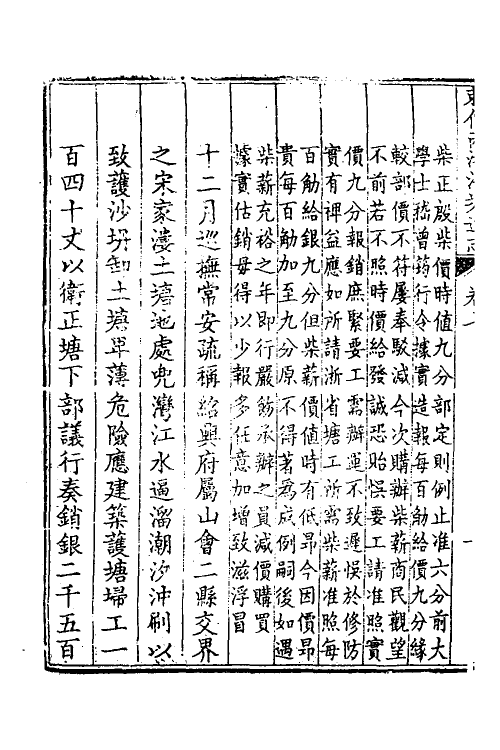 柴正殷柴價時值九分部定則例止准六分前大
學士嵇曾筠行令據實造報每百觔給價九分緣
較部價不符屢奉駁減今次購辦柴薪商民觀望
不前若不照時價給發誠恐貽悞要工請准照實
價九分報銷庶緊要工需辦運不致遲悞於修防
實有裨益應如所請浙省塘工所需柴薪准照每
百觔給銀九分但柴薪價值時有低昂今因價昂
貴每百觔加至九分原不得著為成例嗣後如遇
柴薪充裕之年即行嚴飭承辦之員減價購買
據實估銷毋得以少報多任意加增致滋浮冒
十二月巡撫常安疏稱紹興府屬山會二縣交界
之宋家漊土塘地處兜灣江水逼溜潮汐沖刷以
致護沙坍卸土塘單薄危險應建築護塘埽工一
百四十丈以衛正塘下部議行奏銷銀二千五百